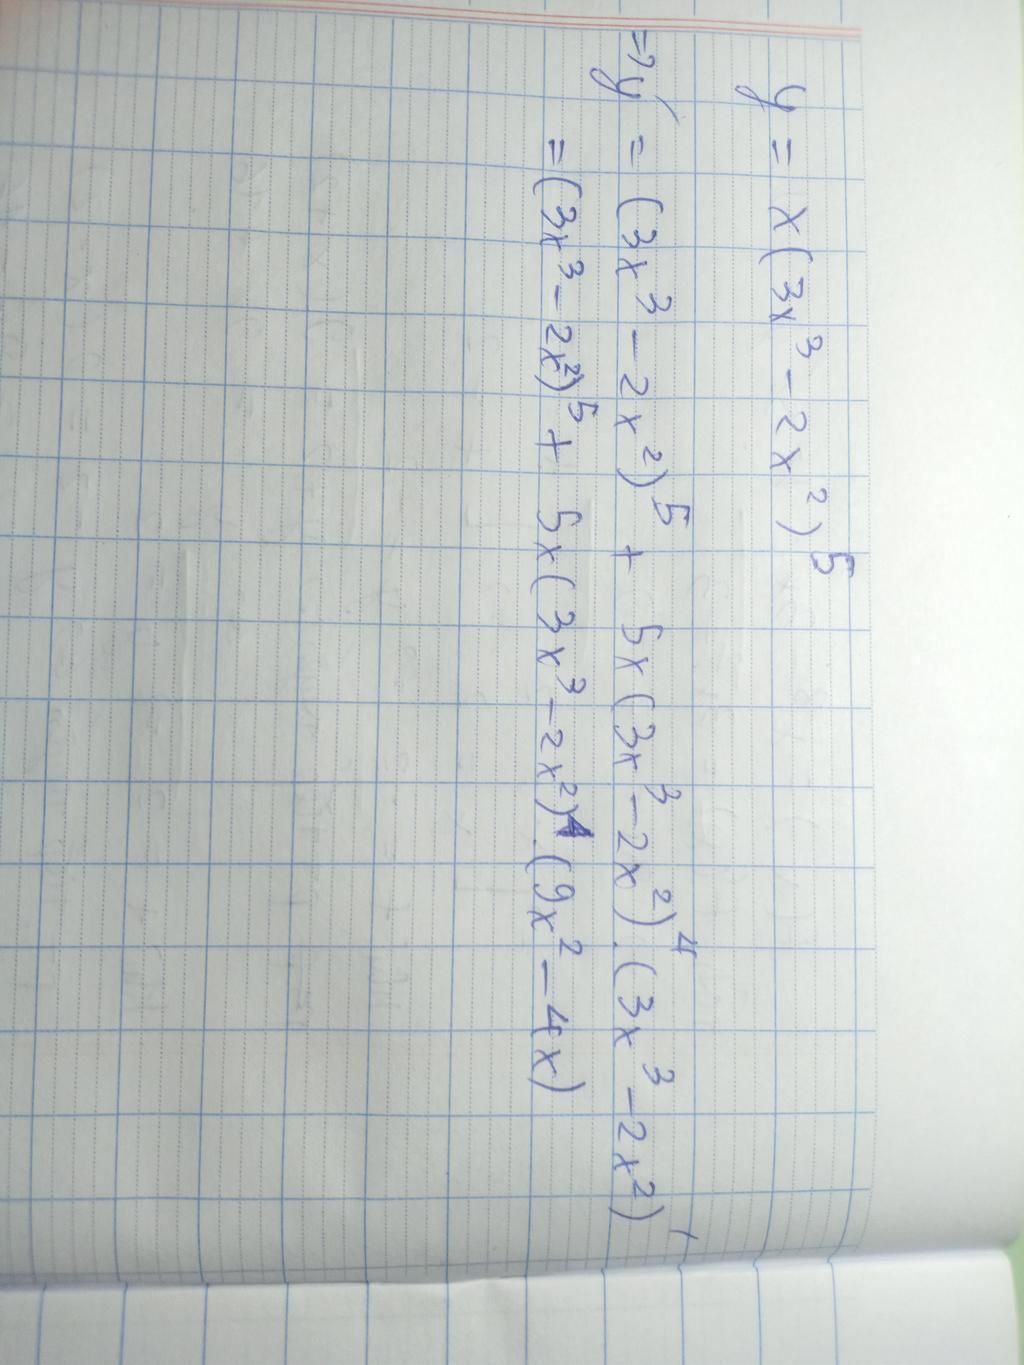 y = x(3x³ - 2x²)⁵
=> y' = (3x³ - 2x²)⁵ + 5x(3x³ - 2x²)⁴.(3x³ - 2x²)'
= (3x³ - 2x²)⁵ + 5x(3x³ - 2x²)⁴.(9x² - 4x)